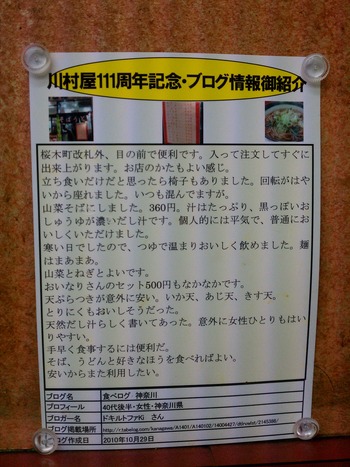 川村屋111周年記念・ブログ情報御紹介
桜木町改札外、目の前で便利です。入って注文してすぐに
出来上がります。お店のかたもよい感じ。
立ち食いだけだと思ったら椅子もありました。回転がはや
いから座れました。いつも混んでますが。
山菜そばにしました。360円。汁はたっぷり、黒っぽいお
しょうゆが濃いだし汁です。個人的には平気で、普通にお
いしくいただけました。
寒い日でしたので、つゆで温まりおいしく飲めました。麺
はまあまあ。
山菜とねぎとよいです。
おいなりさんのセット500円もなかなかです。
天ぷらつきが意外に安い。いか天、あじ天、きす天。
とりにくもおいしそうだった。
天然だし汁らしく書いてあった。意外に女性ひとりもはい
りやすい。
手早く食事するには便利だ。
そば、うどんと好きなほうを食べればよい。
安いからまた利用したい。
ブログ名 食べログ 神奈川
プロフィール 40代後半・女性・神奈川県
ブロガー名 ドキルトファKi さん
ブログ掲載場所
ブログ作成日 2010年10月29日